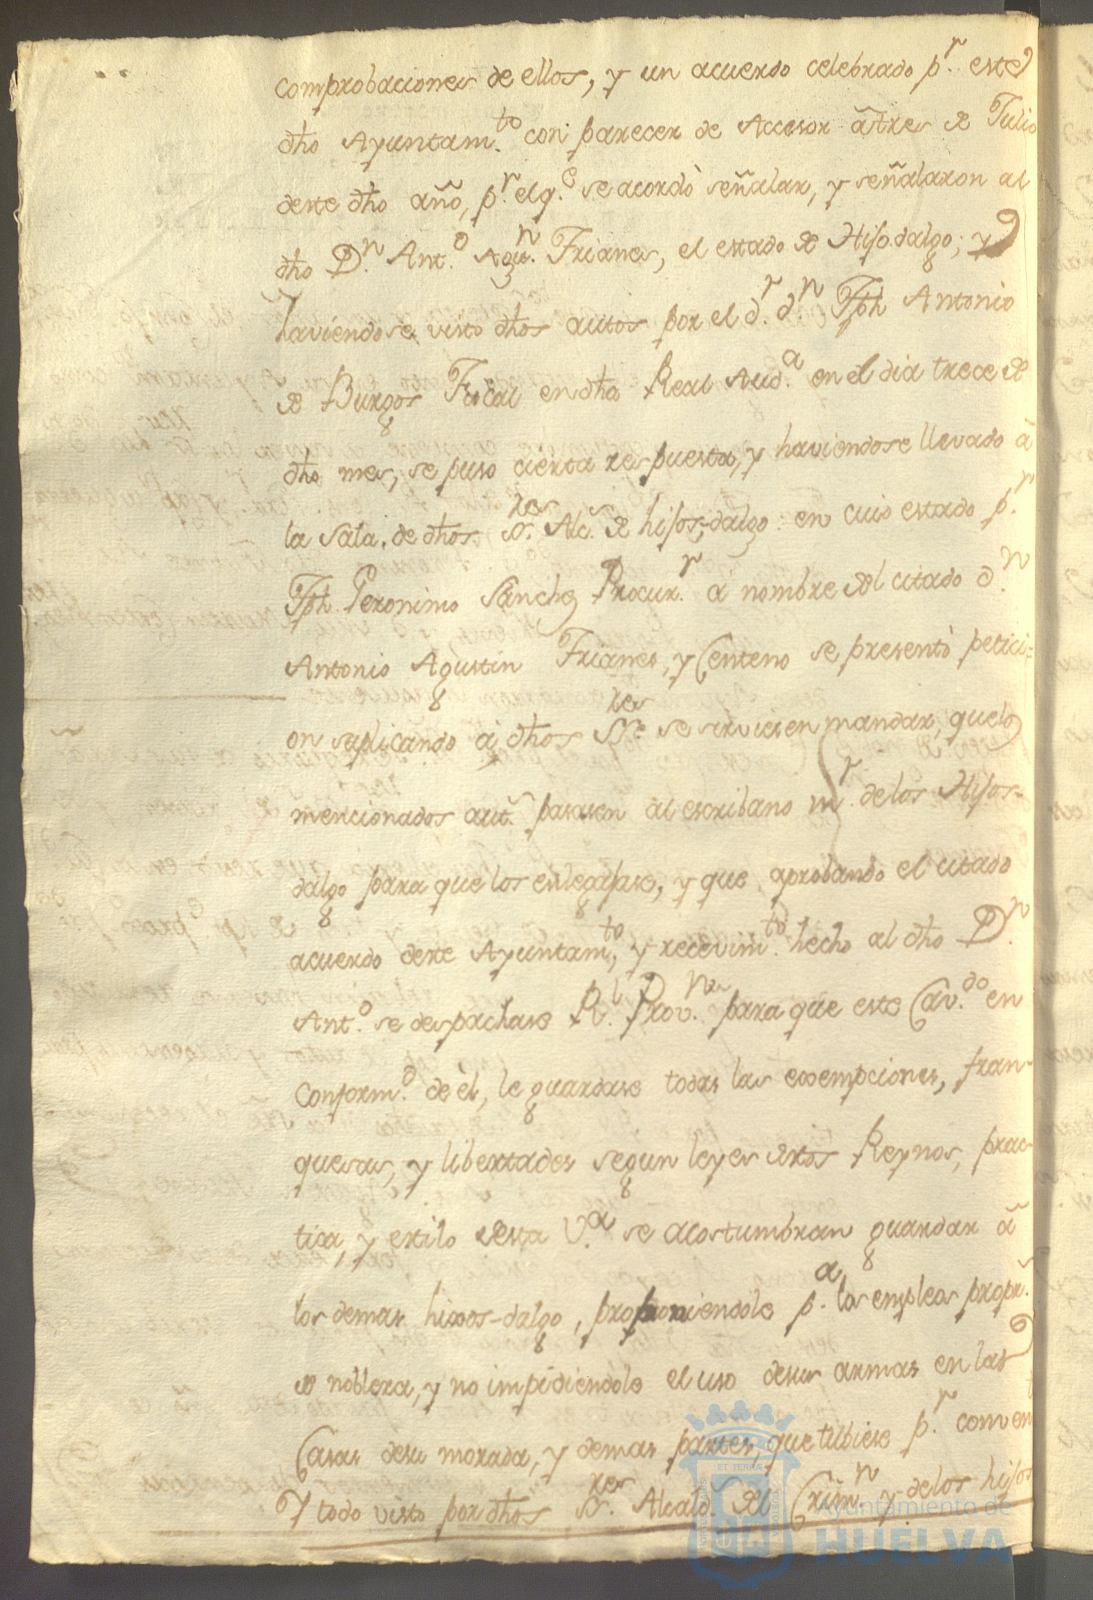 comprobaciones de ellos, y un acuerdo celebrado p.r este
dho Ayuntam.to con parecer de Accesor â tres de Julio
deste dho año, p.r el q.e se acordò señalar, y señalaron al
dho D.n Ant.o Agu.n Frianes, el estado de Hijodalgo; y
haviendose visto dhos autos por el d.r d.n Jph Antonio
de Burgos Fiscal en dha Real Aud.a en el dia trece de
dho mes, se puso cierta respuesta, y haviendose llevado â
la Sala de dhos S.res Alc.s de hijos-dalgo: en cuio estado p.r
Jph. Geronimo Sanchez Procur.r a nombre del citado d.n
Antonio Agustin Frianes, y Centeno se presentò petici-
on suplicando a dhos S.res se sirviesen mandar, que los
mencionados aut.s pasasen al escribano m.r de los Hijos-
dalgo para que los enlegajase, y que aprobando el citado
acuerdo deste Ayuntam.to, y recevim.to hecho al dho D.n
Ant.o se despachase R.l Prov.n para que este Cav.do en
Conform.d de èl, le guardase todas las exempciones, fran-
quesas, y libertades segun leyes destos Reynos, prac-
tica, y estilo desta V.a se acostumbran guardar â
los demas hixos-dalgo, proponiendole p.a los empleos propr.s
de nobleza, y no impidiendole el uso desus armas en las
Casas desu morada, y demas partes, que tubiese p.r conven.
Y todo visto por dhos S.res Alcald.s del Crim.n y delos hijos
Ayuntamiento de
HUELVA